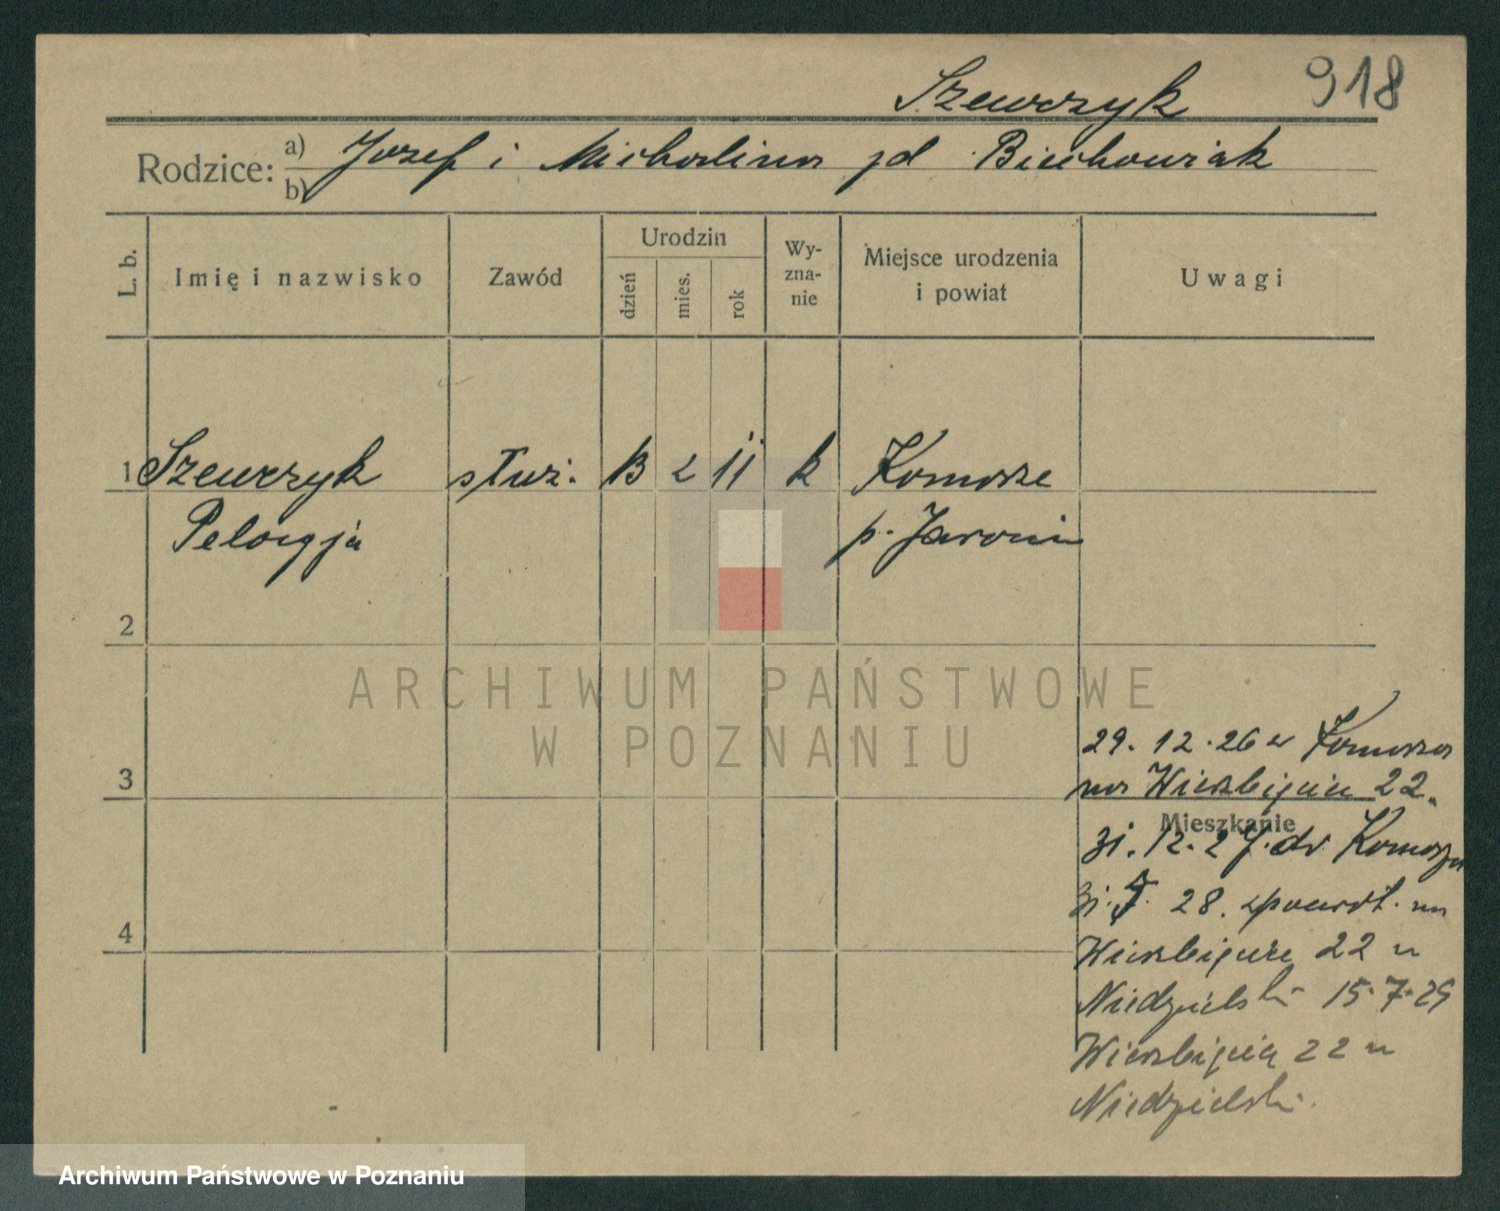 Szewczyk 918
Rodzice: a) Jozef i Michalina zd Biechowiak
b)
L. b. Imię i nazwisko Zawód Urodzin dzień mies. rok Wyznanie Miejsce urodzenia i powiat Uwagi
1 Szewczyk służ. 13 2 11 k Komorze
Pelagja p. Jarocin
2
ARCHIWUM PAŃSTWOWE
W POZNANIU
29. 12. 26 z Komorza
3 na Wierzbięcice 22.
Mieszkanie
31. 12. 27. do Komorza
28. na
4 Wierzbięcice 22 u
Niedzielski 15.7.29
Wierzbięcice 22 u
Niedzielski.
Archiwum Państwowe w Poznaniu